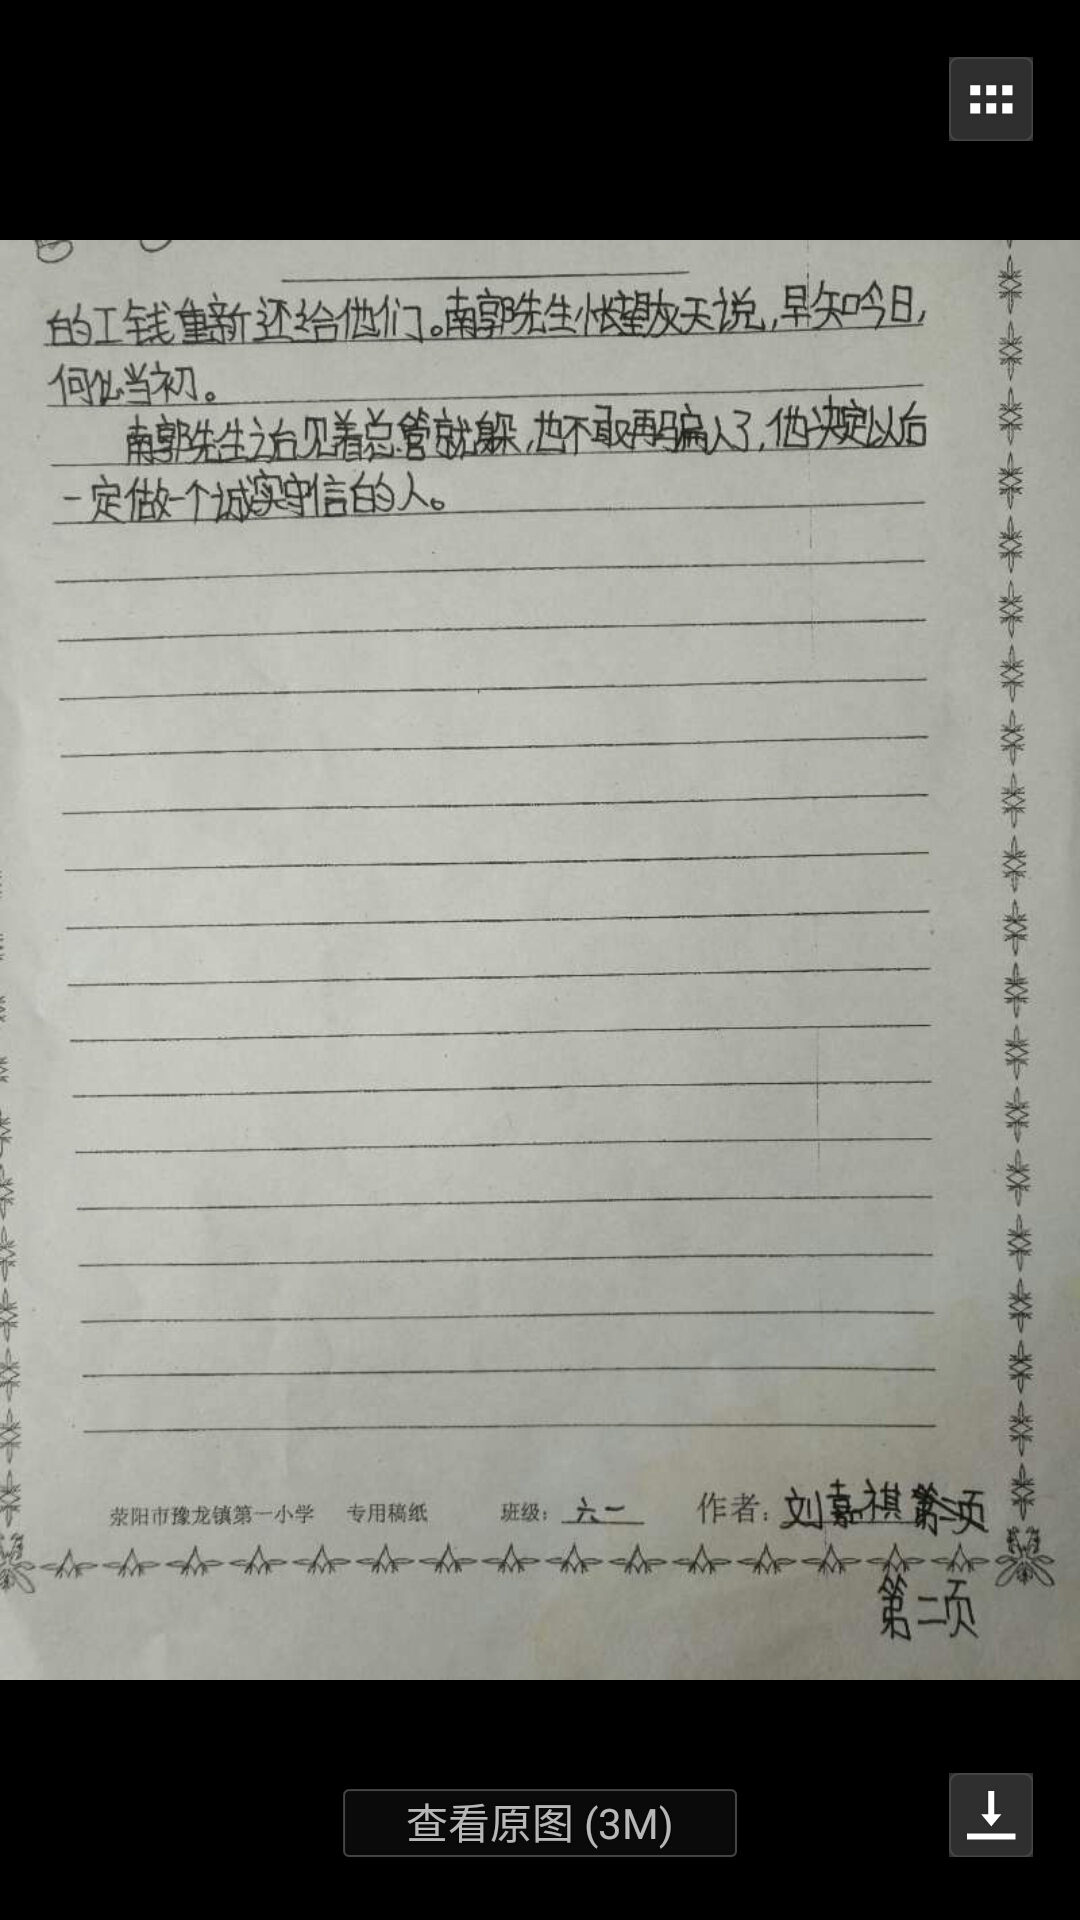 的工钱重新还给他们。南郭先生怅望友天说,早知吟日,
何必当初。
南郭先生之后见着总管就躲,也不敢再骗人了,他决定以后
一定做一个诚实守信的人。
荥阳市豫龙镇第一小学 专用稿纸 班级: 六二 作者: 刘嘉祺
第二页
查看原图 (3M)